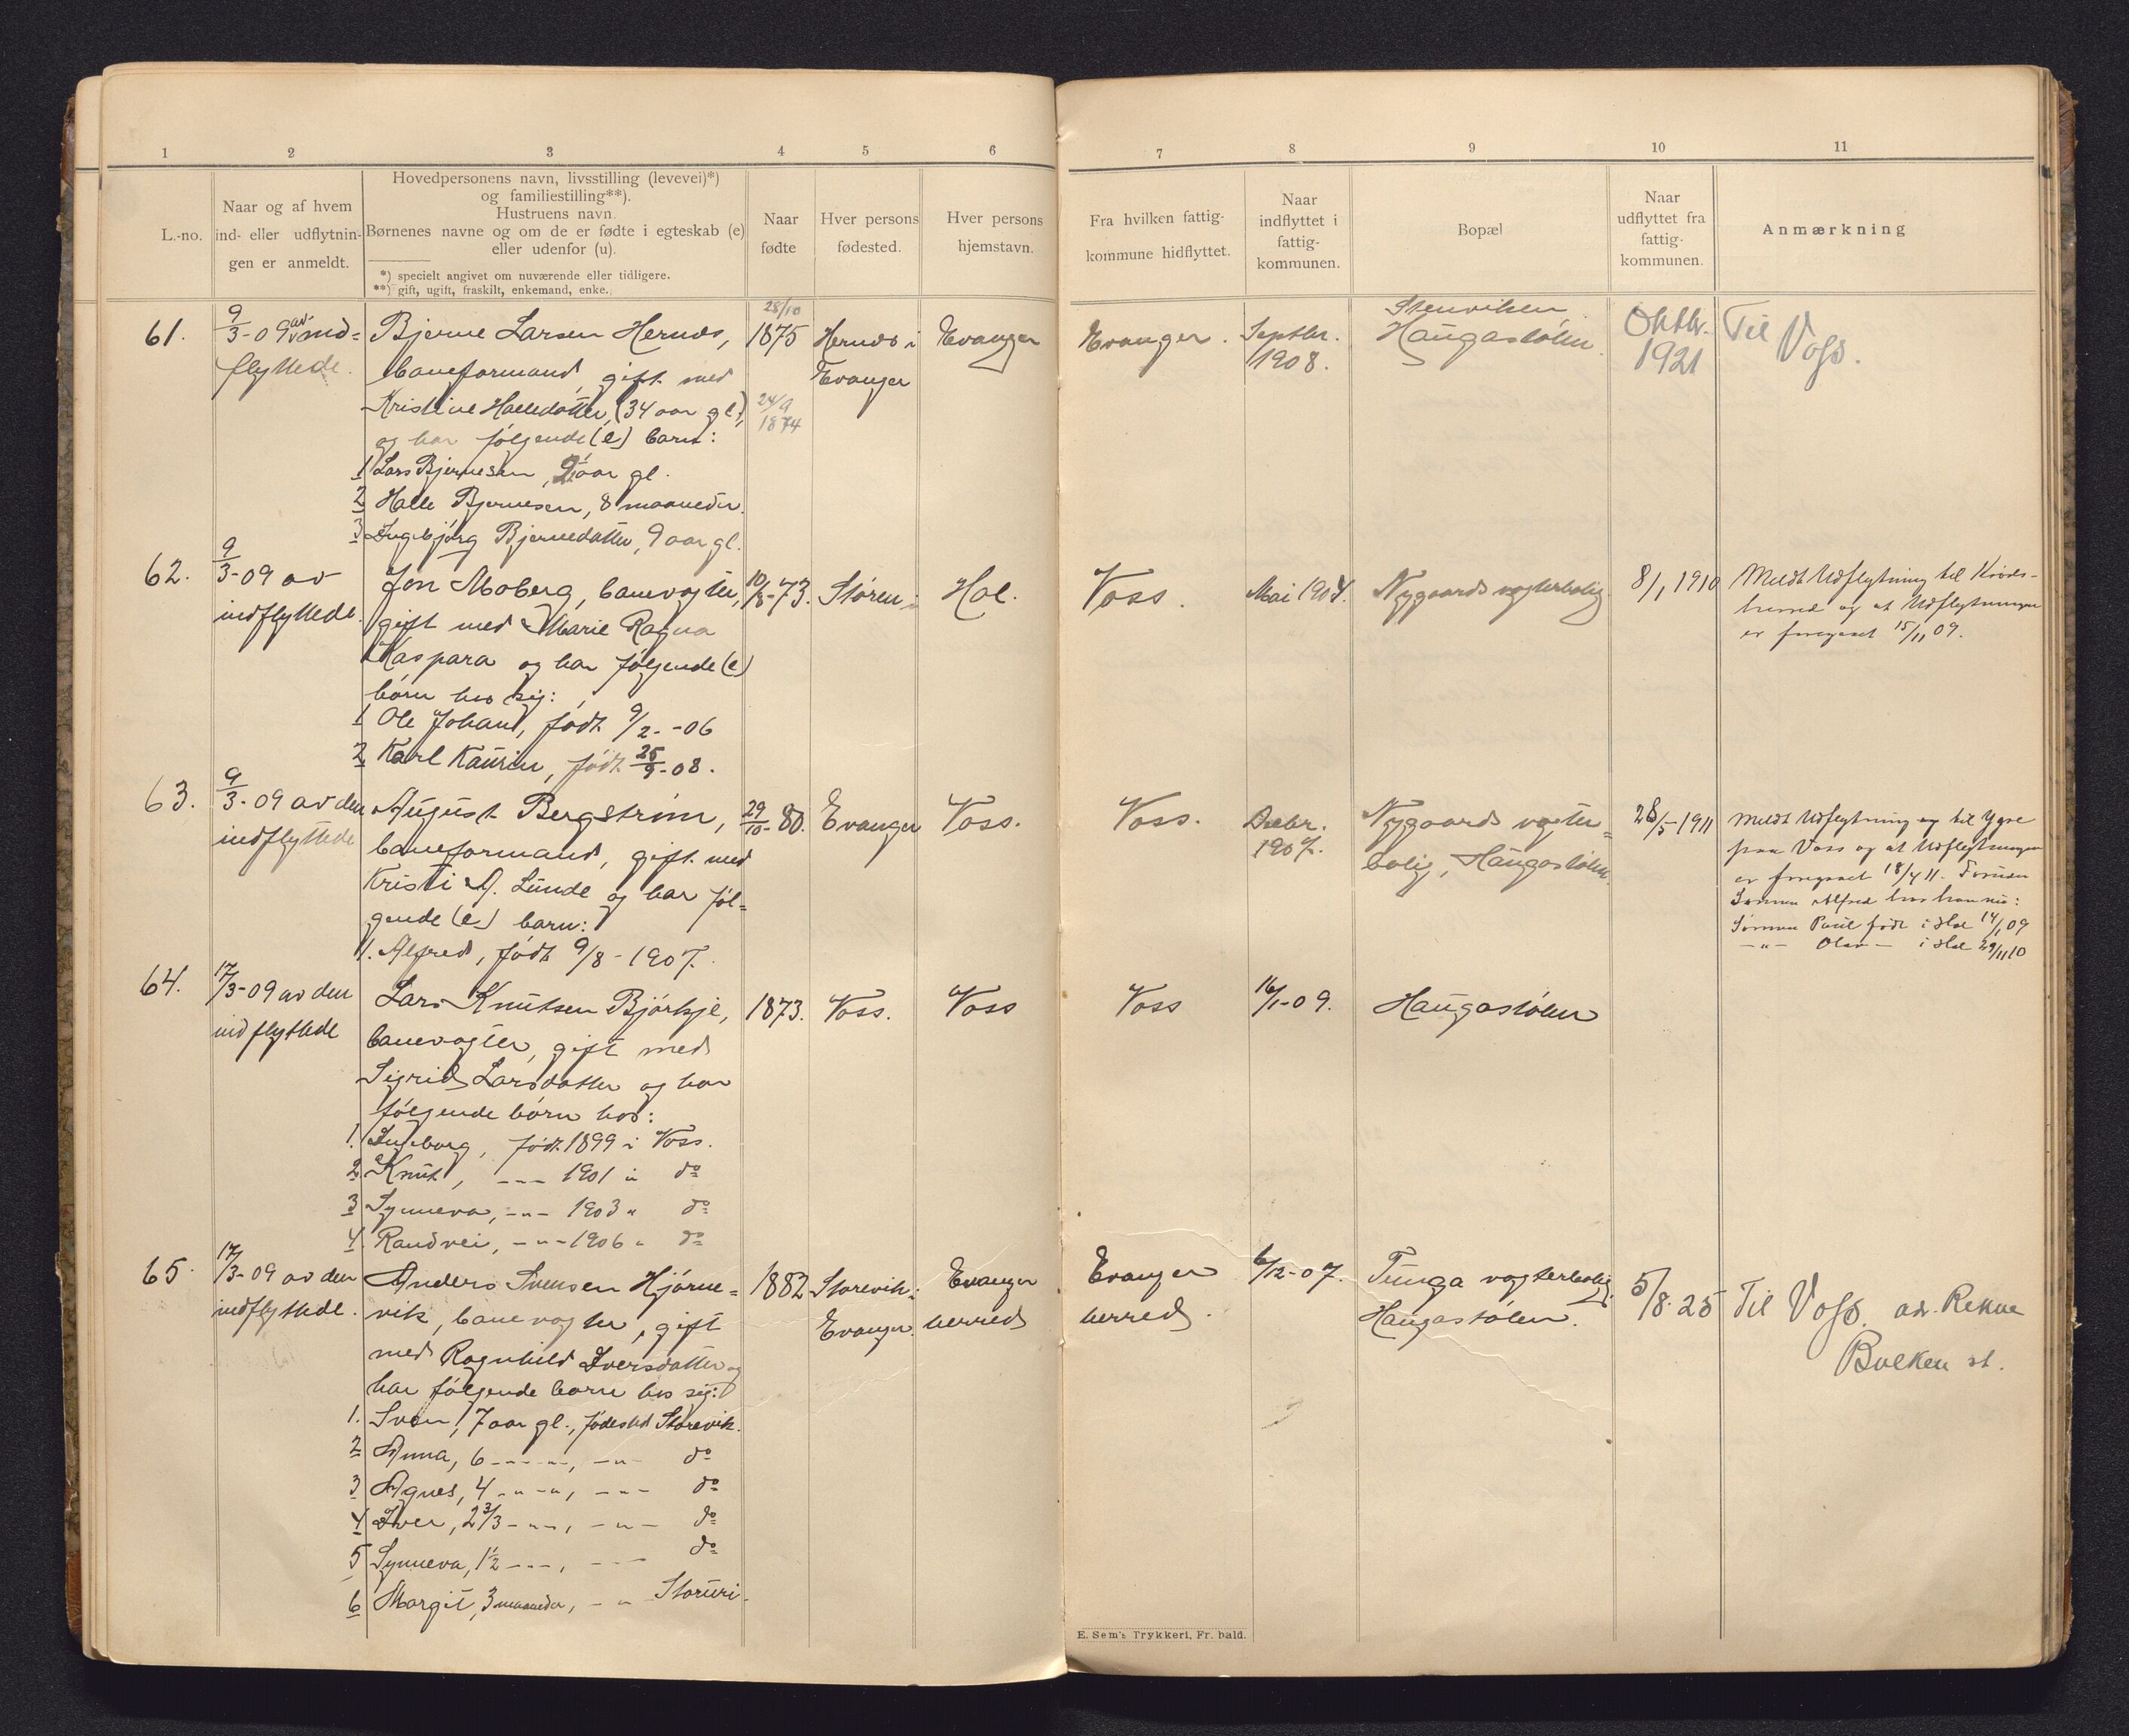 1 2 3 4 5 6 7 8 9 10 11
L.-no.
Naar og af hvem
ind- eller udflytnin-
gen er anmeldt.
Hovedpersonens navn, livsstilling (levevei)*)
og familiestilling**).
Hustruens navn.
Børnenes navne og om de er fødte i egteskab (e)
eller udenfor (u).
*) specielt angivet om nuværende eller tidligere.
**) gift, ugift, fraskilt, enkemand, enke.
Naar
fødte
Hver persons
fødested.
Hver persons
hjemstavn.
Fra hvilken fattig-
kommune hidflyttet.
Naar
indflyttet i
fattig-
kommunen.
Bopæl
Naar
udflyttet fra
fattig-
kommunen.
Anmærkning
61.
9/3-09 av ind-
flyttede.
Bjerne Larsen Hernes,
baneformand, gift med
Kristine Halledatter, (34 aar gl.),
og har følgende (e) barn:
1 Lars Bjernesen, 2 aar gl.
2 Halle Bjernesen, 8 maaneder.
3 Ingebjørg Bjernedatter, 9 aar gl.
28/10
1875
24/9
1874
Hernes i
Evanger
Evanger
Evanger.
Septbr.
1908.
Stenviken
Haugastølen.
Oktbr.
1921
Til Voss.
62.
9/3-09 av
indflyttede.
Jon Moberg, banevogter,
gift med Marie Ragna
Kaspara og har følgende (e)
børn hos sig:
1 Ole Johan, født 9/2.-06
2 Karl Kaurin, født 25/9-08.
10/8-73.
Støren
Hol.
Voss.
Mai 1904.
Nygaards vogterbolig.
8/1 1910
Meldt Udflytning til Kvids-
herred og at Udflytningen
er foregaaet 15/11 09.
63.
9/3-09 av den
indflyttede
August Bergstrøm,
baneformand, gift med
Kristi A. Lunde og har føl-
gende (e) barn:
1. Alfred, født 9/8-1907.
29/10-80.
Evanger
Voss.
Voss.
Decbr.
1907.
Nygaards vogter-
bolig, Haugastølen.
28/5-1911
Meldt Udflytning til Ygre
paa Voss og at Udflytningen
er foregaaet 18/4 11. Foruden
Sønnen Alfred har han nu:
Sønnen Paul født i Hol 14/1 09
-"- Olav - i Hol 29/11 10
64.
17/3-09 av den
indflyttede
Lars Knutsen Bjørkje,
banevogter, gift med
Sigrid Larsdatter og har
følgende børn hos:
1. Ingeborg, født 1899 i Voss.
2 Knut, -"- 1901 i do
3 Synneva, -"- 1903 " do
4. Randvei, -"- 1906 " do
1873.
Voss.
Voss
Voss
16/1-09.
Haugastølen
65.
17/3-09 av den
indflyttede.
Anders Svensen Hjørne-
vik, banevogter, gift
med Ragnhild Iversdatter og
har følgende børn hos sig:
1. Sven, 7 aar gl., fødested Storevik.
2 Anna, 6 -"- -"-, -"- do
3 Agnes, 4 -"- -"-, -"- do
4 Iver, 2 3/3 -"-, -"- do
5 Synneva, 1½ -"-, -"- do
6 Margit, 3 maaneder, -"- Storuri.
1882
Storevik i
Evanger.
Evanger
herred
Evanger
herred.
6/12-07.
Tunga vogterbolig,
Haugastølen.
5/8.25
Til Voss. adr. Rekve
Bulken st.
E. Sem's Trykkeri, Fr. hald.